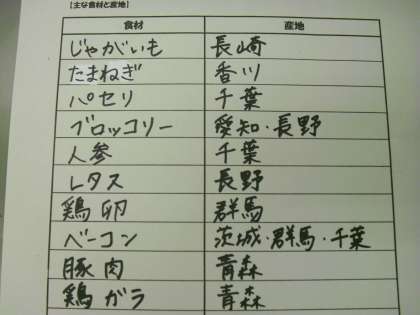 【主な食材と産地】
食材 産地
じゃがいも 長崎
たまねぎ 香川
パセリ 千葉
ブロッコリー 愛知・長野
人参 千葉
レタス 長野
鶏卵 群馬
ベーコン 茨城・群馬・千葉
豚肉 青森
鶏ガラ 青森